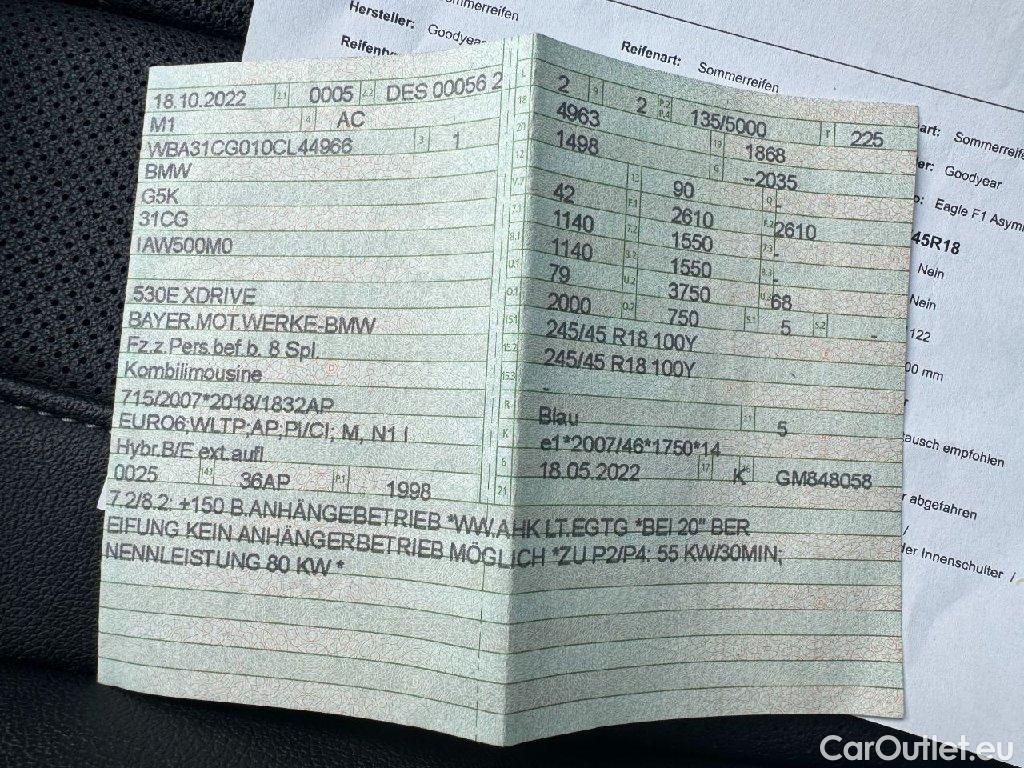 Sommerreifen
Hersteller: Goodyear
Reifenart: Sommerreifen
18.10.2022 2.1 0005 2.2 DES 00056 2
M1 4 AC
WBA31CG010CL44966 3 1
BMW
G5K
31CG
IAW500M0
530E XDRIVE
BAYER.MOT.WERKE-BMW
Fz.z.Pers.bef.b. 8 Spl
Kombilimousine
715/2007*2018/1832AP
EURO6;WLTP;AP;PI/CI; M, N1 I
Hybr.B/E ext.aufl
0025 36AP P.1 1998
L 2 9 2 P.2 P.4 135/5000 T 225
18 4963 19 1868
20 1498 G --2035
12 - 13 90 Q -
V.7 42 F.1 2610 F.2 2610
7.1 1140 7.2 1550 7.3 -
8.1 1140 8.2 1550 8.3 -
U.1 79 U.2 3750 U.3 68
O.1 2000 O.2 750 S.1 5 S.2 -
15.1 245/45 R18 100Y
15.2 245/45 R18 100Y
15.3 -
R Blau 11 5
K e1*2007/46*1750*14
6 18.05.2022 17 K 16 GM848058
21
7.2/8.2: +150 B.ANHÄNGEBETRIEB *WW.AHK LT.EGTG *BEI 20" BER
EIFUNG KEIN ANHÄNGERBETRIEB MÖGLICH *ZU P2/P4: 55 KW/30MIN;
NENNLEISTUNG 80 KW *
art: Sommerreife
er: Goodyear
p: Eagle F1 Asym
45R18
Nein
Nein
122
00 mm
tausch empfohlen
r abgefahren
der Innenschulter i
CarOutlet.eu